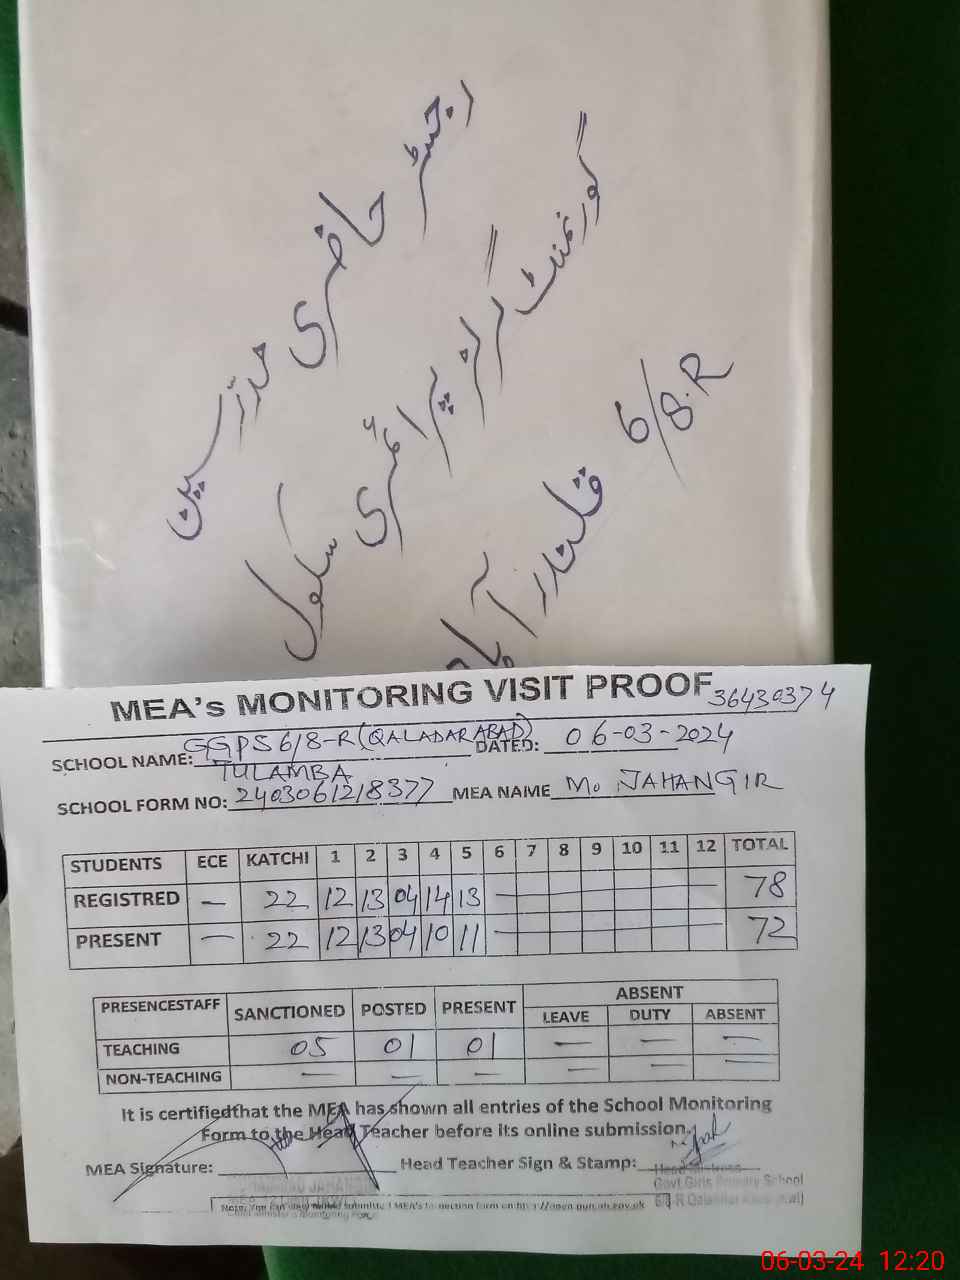 رجسٹر حاضری مدرسین
گورنمنٹ گرلز پرائمری سکول
قلندر آباد 6/8.R
MEA's MONITORING VISIT PROOF 36430374
SCHOOL NAME: GGPS 6/8-R (QALADARABAD) TULAMBA DATED: 06-03-2024
SCHOOL FORM NO: 2403061218377 MEA NAME M. JAHANGIR
STUDENTS ECE KATCHI 1 2 3 4 5 6 7 8 9 10 11 12 TOTAL
REGISTRED — 22 12 13 04 14 13 — 78
PRESENT — 22 12 13 04 10 11 — 72
PRESENCESTAFF SANCTIONED POSTED PRESENT ABSENT
LEAVE DUTY ABSENT
TEACHING 05 01 01 — — —
NON-TEACHING — — — — — —
It is certifiedthat the MEA has shown all entries of the School Monitoring
Form to the Head Teacher before its online submission.
MEA Signature: Head Teacher Sign & Stamp:
Govt Girls Primary School
06-03-24 12:20